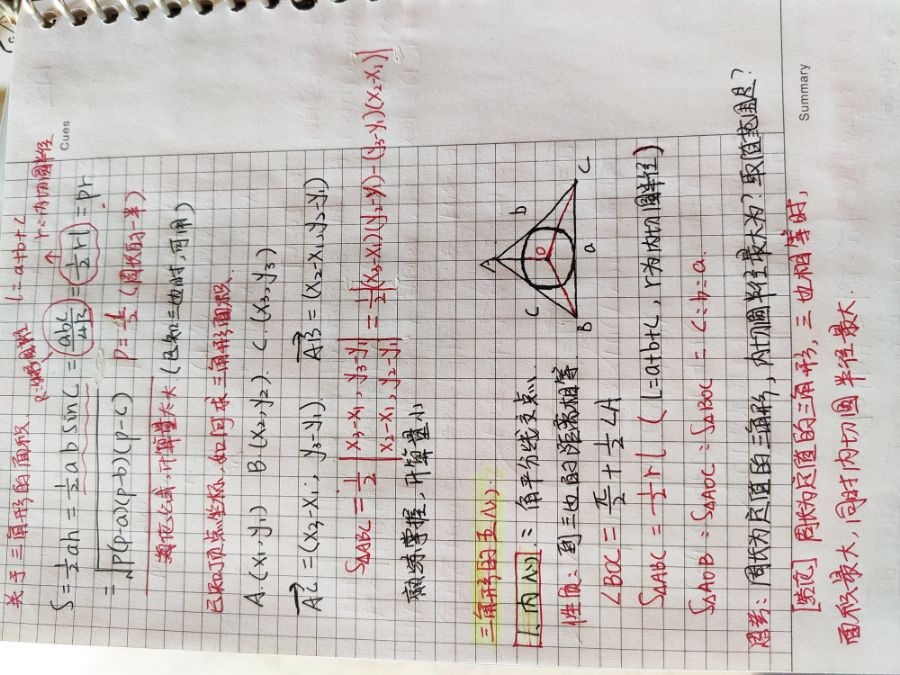 关于三角形的面积.
R=外接圆半径 l=a+b+c r=内切圆半径
S=½ah=½ab sinC=abc/4R=½rl=pr
=√P(P-a)(P-b)(P-c) P=l/2(周长的一半)
海伦公式,计算量大大(已知三边时,可用)
已知顶点坐标,如何求三角形面积.
A.(x₁,y₁) B(x₂,y₂). C.(x₃,y₃)
AC=(x₃-x₁, y₃-y₁). AB=(x₂-x₁,y₂-y₁)
S△ABC=½|x₃-x₁,y₃-y₁
x₂-x₁,y₂-y₁|=½|(x₃-x₁)(y₂-y₁)-(y₃-y₁)(x₂-x₁)|
熟练掌握,计算量小
三角形的五心.
1.内心:角平分线交点.
性质:到三边的距离相等
∠BOC=π/2+½∠A
S△ABC=½rl(l=a+b+c,r为内切圆半径)
S△AOB:S△AOC:S△BOC=c:b:a.
A
c
b
O
B
a
C
思考:周长为定值的三角形,内切圆半径最大为?取值范围是?
[结论]周长为定值的三角形,三边相等时,
面积最大,同时内切圆半径最大.
Cues
Summary